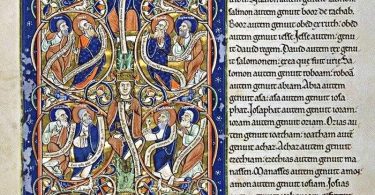 salmon autem genuit booz de rachab.
Booz autem genuit obed ex ruth: obed
autem genuit iesse. Jesse autem genuit
David regem. David autem rex genu
it salomonem. ex ea que fuit urie. Sa
lomon autem genuit roboam: roboã
autem genuit abiam. Abia autem
genuit asa: asa autem genuit iosa
phat. Josaphat autem genuit io
ram. ioram autem genuit oziam. Ozias
autem genuit ioatham: ioatham autẽ
genuit achaz. Achaz autem genuit
ezechiam: ezechias autem genuit ma
nassen. Manasses autem genuit
amon: amon autem genuit iosiam. Josias